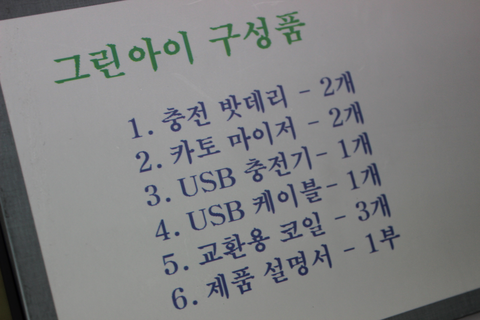 그린아이 구성품
1. 충전 밧데리 - 2개
2. 카토 마이저 - 2개
3. USB 충전기- 1개
4. USB 케이블- 1개
5. 교환용 코일 - 3개
6. 제품 설명서 - 1부